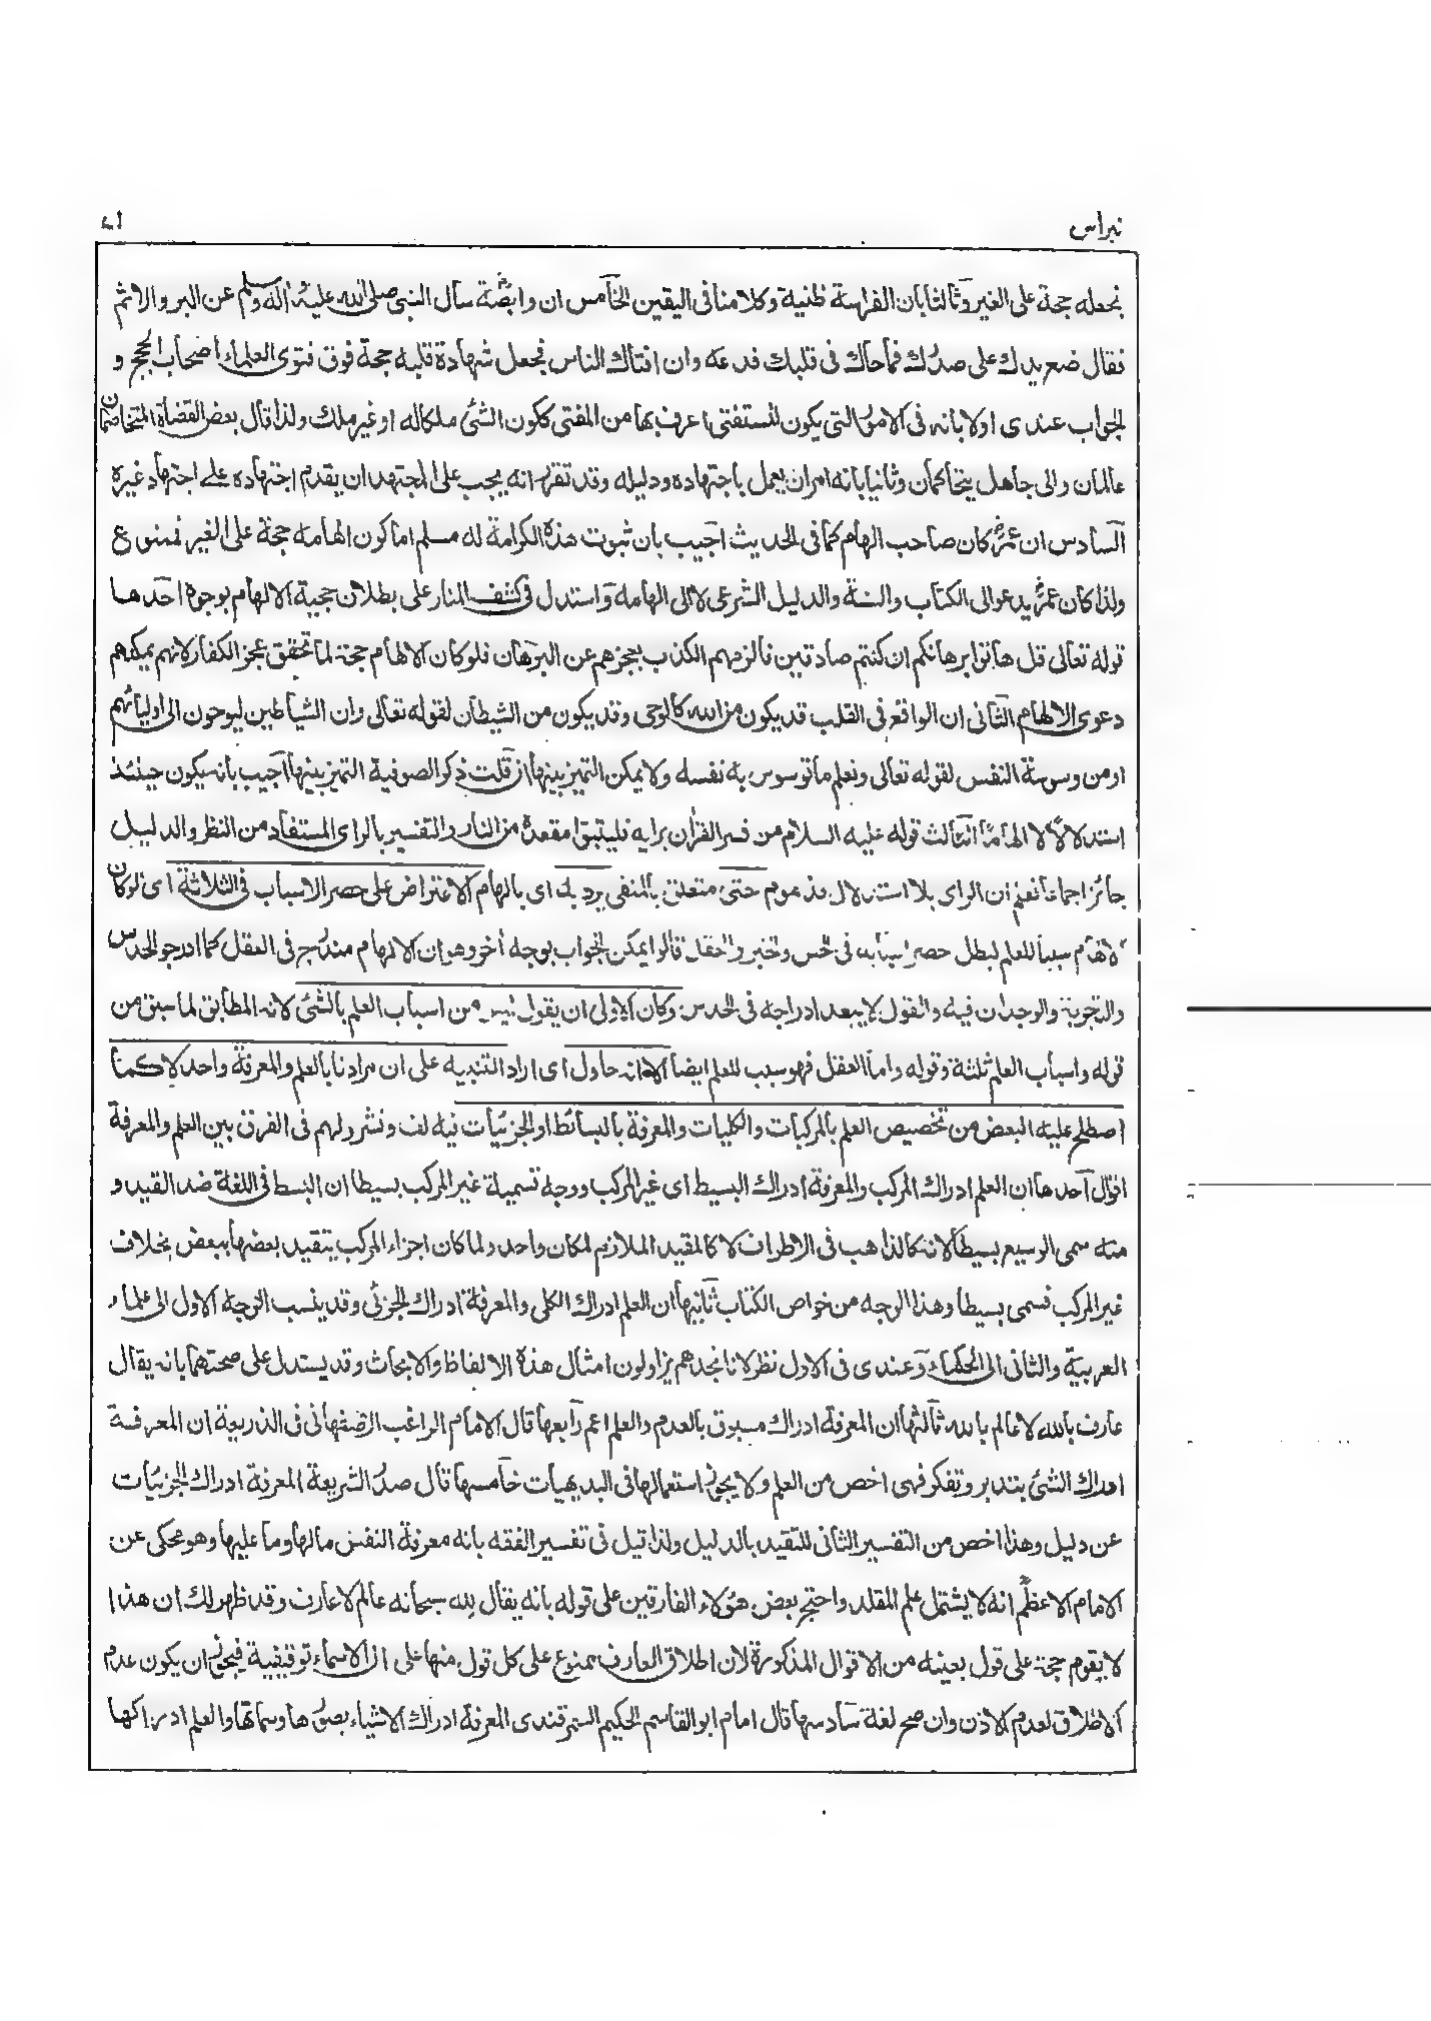 نبراس
نجعله حجة على الغير وثالثا بان الفراسة ظنية وكلامنا فى اليقين الخامس ان وابصة سأل النبى صلى الله عليه وآله وسلم عن البر والاثم
فقال ضع يدك على صدرك فما حاك فى قلبك فدعه وان افتاك الناس فجعل شهادة قلبه حجة فوق فتوى العلماء اصحاب الحجج و
الجواب عندى اولا بانه فى الامور التى يكون المستفتى اعرف بها من المفتى ككون الشئ ملكاله او غير ملك ولذا قال بعض القضاة المتخاصمان
عالمان والى جاهل يتحاكمان وثانيا بانه امر ان يعمل باجتهاده ودليله وقد تقرر انه يجب على المجتهد ان يقدم اجتهاده على اجتهاد غيره
السادس ان عمر كان صاحب الهام كما فى الحديث اجيب بان ثبوت هذه الكرامة له مسلم اما كون الهامه حجة على الغير فممنوع
ولذا كان عمر يدعو الى الكتاب والسنة والدليل الشرعى لا الى الهامه واستدل فى كشف المنار على بطلان حجية الالهام بوجوه احدها
قوله تعالى قل هاتوا برهانكم ان كنتم صادقين فالزمهم الكذب بعجزهم عن البرهان فلو كان الالهام حجة لما تحقق عجز الكفار لانهم يمكنهم
دعوى الالهام الثانى ان الواقع فى القلب قد يكون من الله كالوحى وقد يكون من الشيطان لقوله تعالى وان الشياطين ليوحون الى اوليائهم
او من وسوسة النفس لقوله تعالى ونعلم ما توسوس به نفسه ولا يمكن التميز بينها ان قلت ذكر الصوفية التميز بينها اجيب بانه يكون حينئذ
استدلالا لا الهاما الثالث قوله عليه السلام من فسر القرأن برايه فليتبوأ مقعده من النار والتفسير بالراى المستفاد من النظر والدليل
جائز اجماعا فعلم ان الراى بلا استدلال مذموم حتى متعلق بالمنفى يرد به اى بالهام الاعتراض على حصر الاسباب فى الثلاثة اى لو كان
الالهام سببا للعلم لبطل حصر اسبابه فى الحس والخبر والعقل قالوا يمكن الجواب بوجه أخر وهو ان الالهام مندرج فى العقل كما اندرجو الحدس
والتجربة والوجدان فيه والقول لا يبعد ادراجه فى الحدس وكان الاولى ان يقول ليس من اسباب العلم بالشئ لانه المطابق لما سبق من
قوله واسباب العلم ثلثة وقوله واما العقل فهو سبب للعلم ايضا الا انه حاول اى اراد التنبيه على ان مرادنا بالعلم والمعرفة واحد لا كما
اصطلح عليه البعض من تخصيص العلم بالمركبات والكليات والمعرفة بالبسائط او الجزئيات فيه لف ونشر ولهم فى الفرق بين العلم والمعرفة
اقوال احدها ان العلم ادراك المركب والمعرفة ادراك البسيط اى غير المركب ووجه تسمية غير المركب بسيطا ان البسط فى اللغة ضد القيد و
منه سمى الوسيع بسيطا لانه كالذاهب فى الاطراف لا كالمقيد الملازم لمكان واحد ولما كان اجزاء المركب يتقيد بعضها ببعض بخلاف
غير المركب فسمى بسيطا وهذا الوجه من خواص الكتاب ثانيها ان العلم ادراك الكلى والمعرفة ادراك الجزئى وقد ينسب الوجه الاول الى علماء
العربية والثانى الى الحكماء وعندى فى الاول نظر لانا نجدهم يزاولون امثال هذه الالفاظ والابحاث وقد يستدل على صحتهما بانه يقال
عارف بالله لا عالم بالله ثالثها ان المعرفة ادراك مسبوق بالعدم والعلم اعم رابعها قال الامام الراغب الاصفهانى فى الذريعة ان المعرفة
ادراك الشئ بتدبر وتفكر فهى اخص من العلم ولا يجوز استعمالها فى البديهيات خامسها قال صدر الشريعة المعرفة ادراك الجزئيات
عن دليل وهذا اخص من التفسير الثانى للتقيد بالدليل ولذا قيل فى تفسير الفقه بانه معرفة النفس مالها وما عليها وهو محكى عن
الامام الاعظم انه لا يشتمل علم المقلد واحتج بعض هؤلاء الفارقين على قوله بانه يقال لله سبحانه عالم لا عارف وقد ظهر لك ان هذا
لا يقوم حجة على قول بعينه من الاقوال المذكورة لان اطلاق العارف ممنوع على كل قول منها على ان الاسماء توقيفية فيجوز ان يكون عدم
الاطلاق لعدم الاذن وان صح لغة سادسها قال امام ابو القاسم الحكيم السمرقندى المعرفة ادراك الاشياء بصورها وسماتها والعلم ادراكها